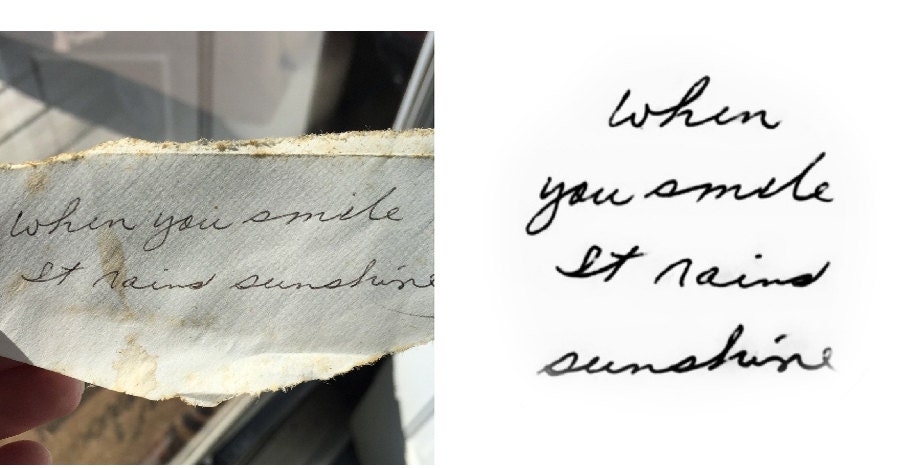 When you smile
It rains sunshine
When
you smile
It rains
sunshine